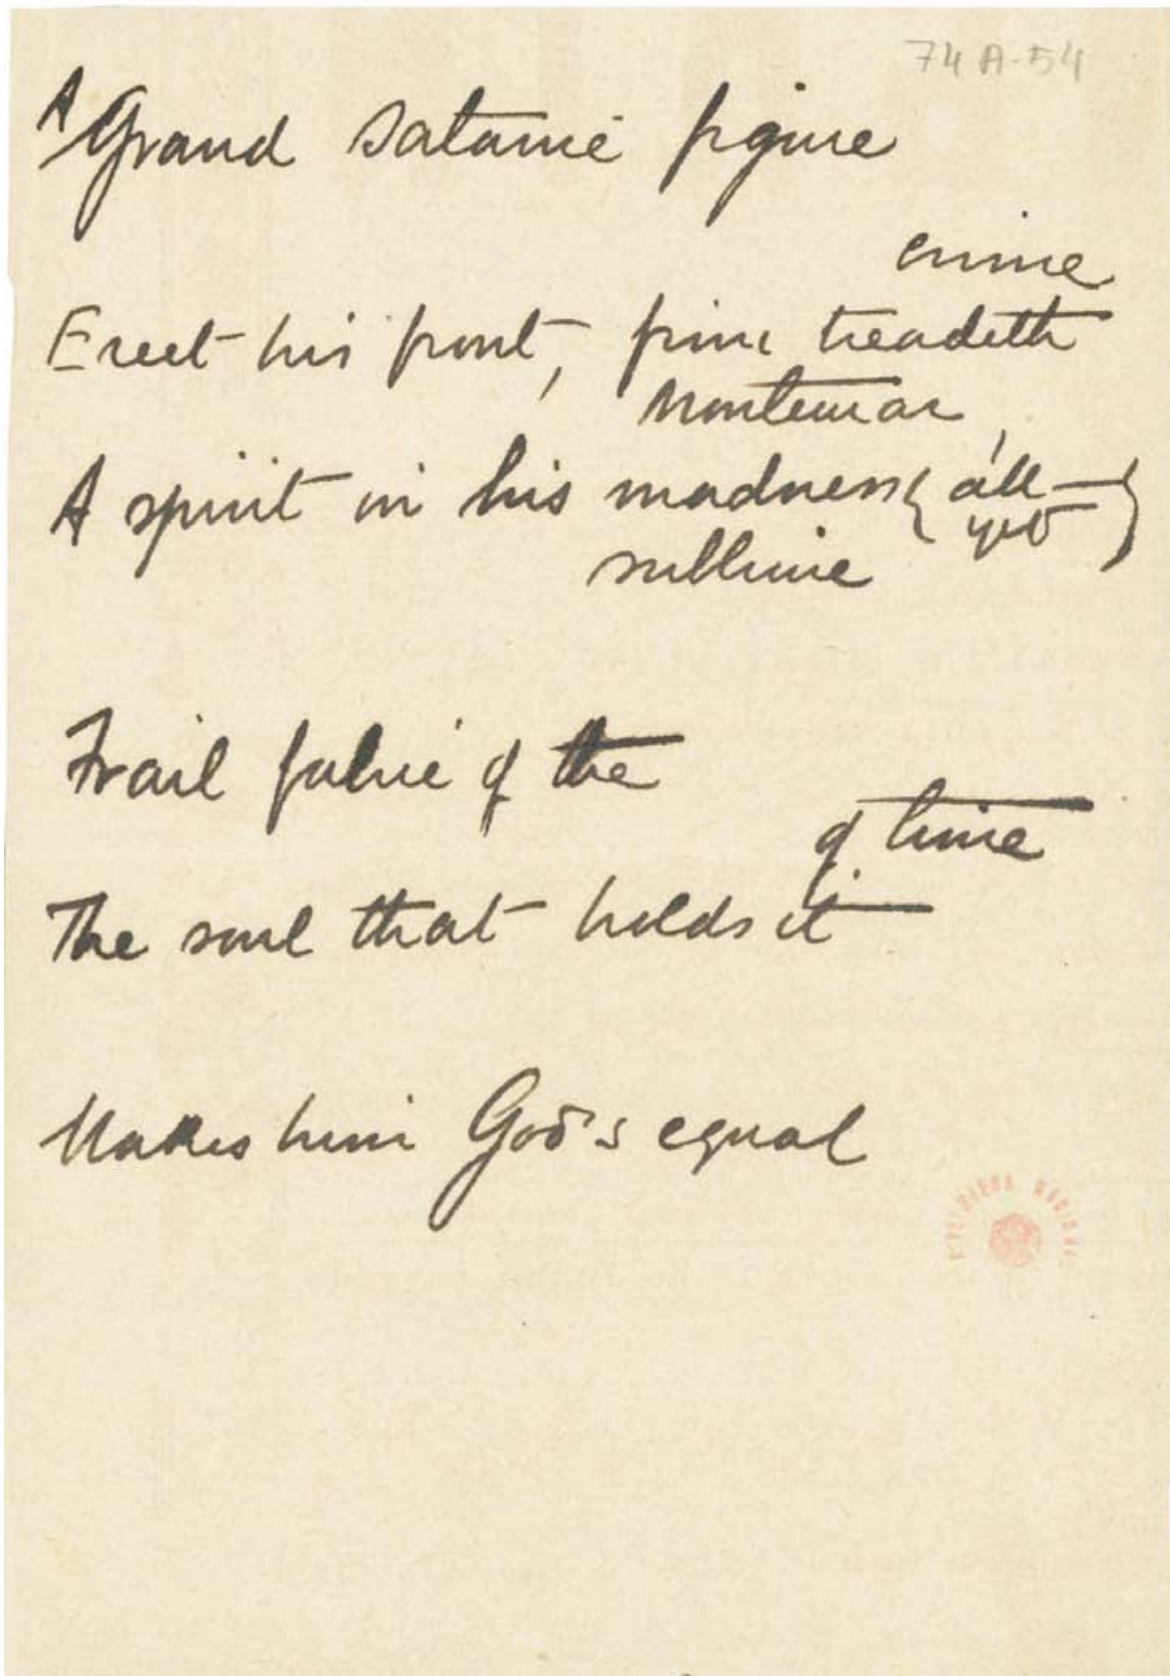 74 A-54
A Grand satanic figure
crime
Erect his front, firm treadeth
Montemar,
A spirit in his madness { all
yet }
sublime
Frail fabric of the
of time
The soul that holds it
Makes him God's equal
BIBLIOTECA NACIONAL